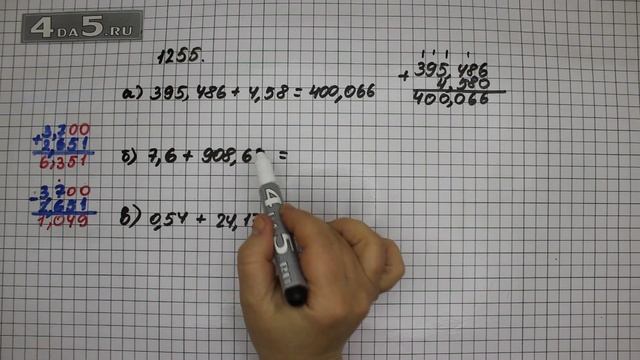 4DA5.RU
1255.
а) 395,486 + 4,58 = 400,066
395,486
+ 4,580
400,066
3,700
+ 2,651
6,351
б) 7,6 + 908,6 =
3,700
- 2,651
1,049
в) 0,54 + 24,1
4 5